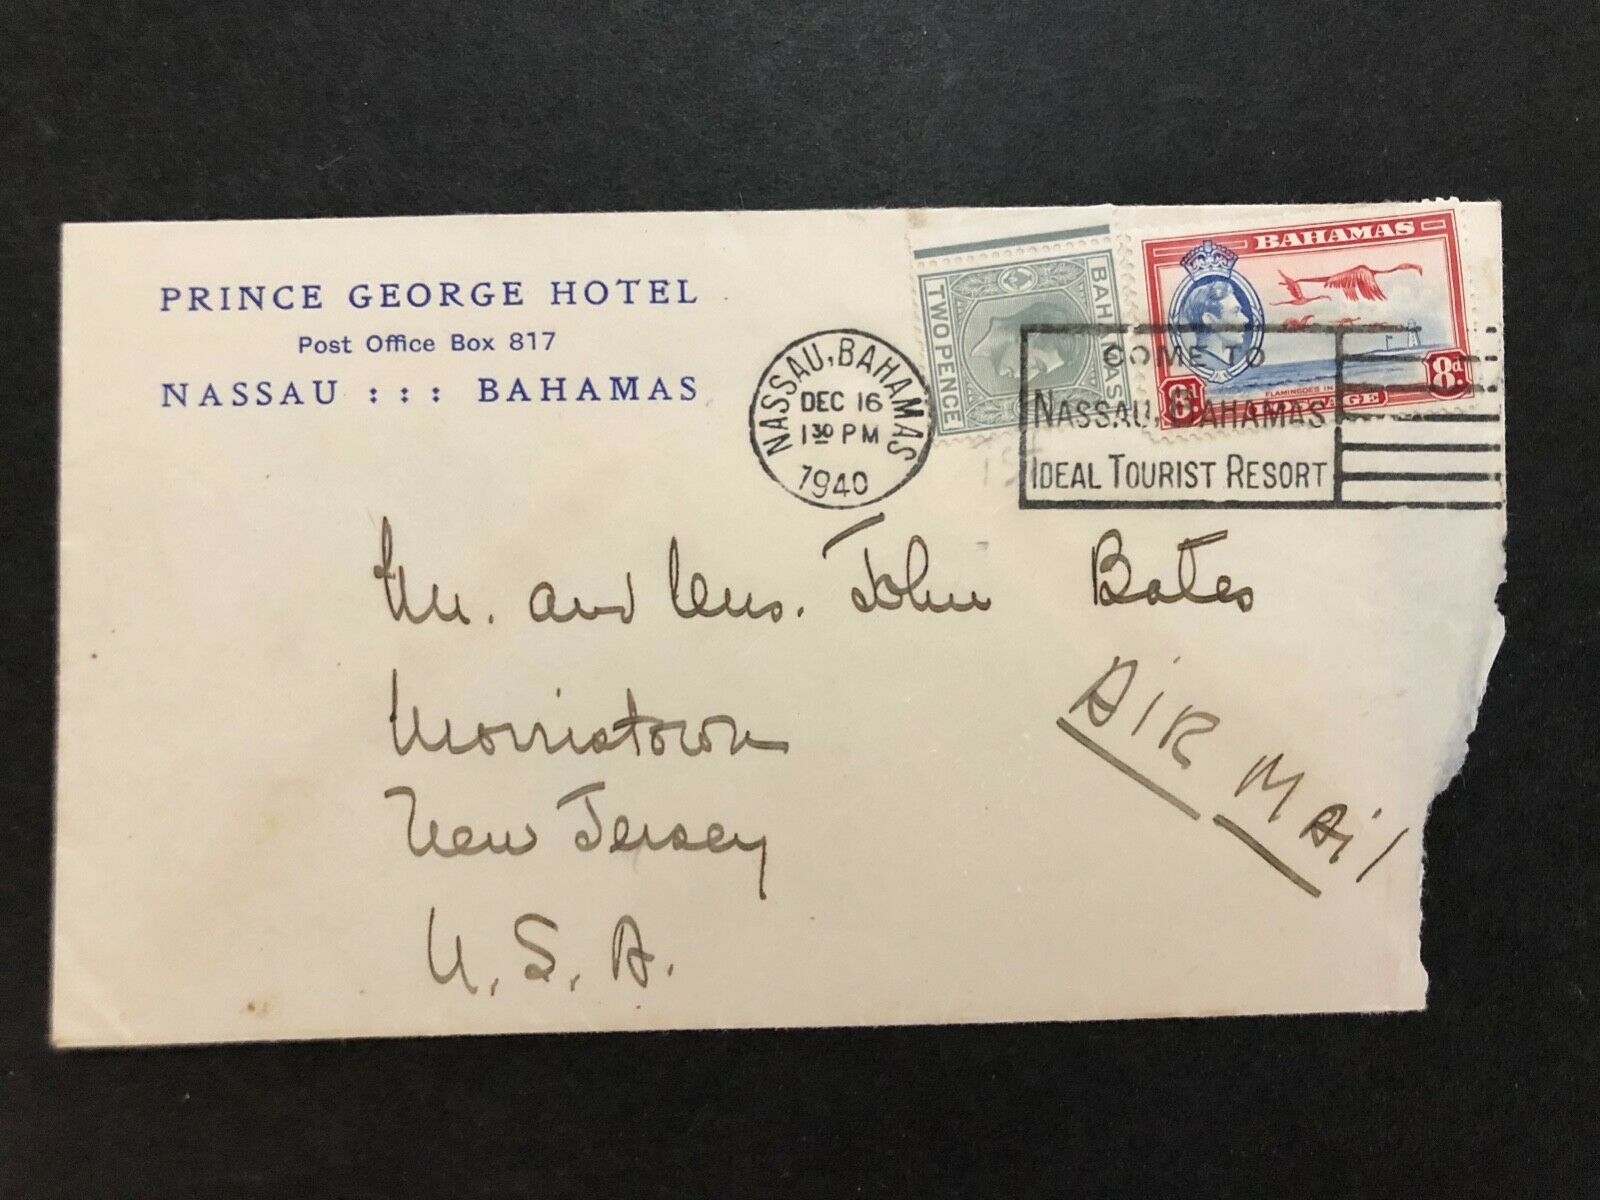 PRINCE GEORGE HOTEL
Post Office Box 817
NASSAU ::: BAHAMAS
NASSAU, BAHAMAS
DEC 16
1 30 PM
1940
BAHAMAS
TWO PENCE
BAHAMAS
8d
8d
FLAMINGOES IN
COME TO
NASSAU, BAHAMAS
IDEAL TOURIST RESORT
Mr. and Mrs. John Bates
Morristown
New Jersey
U.S.A.
AIR MAil